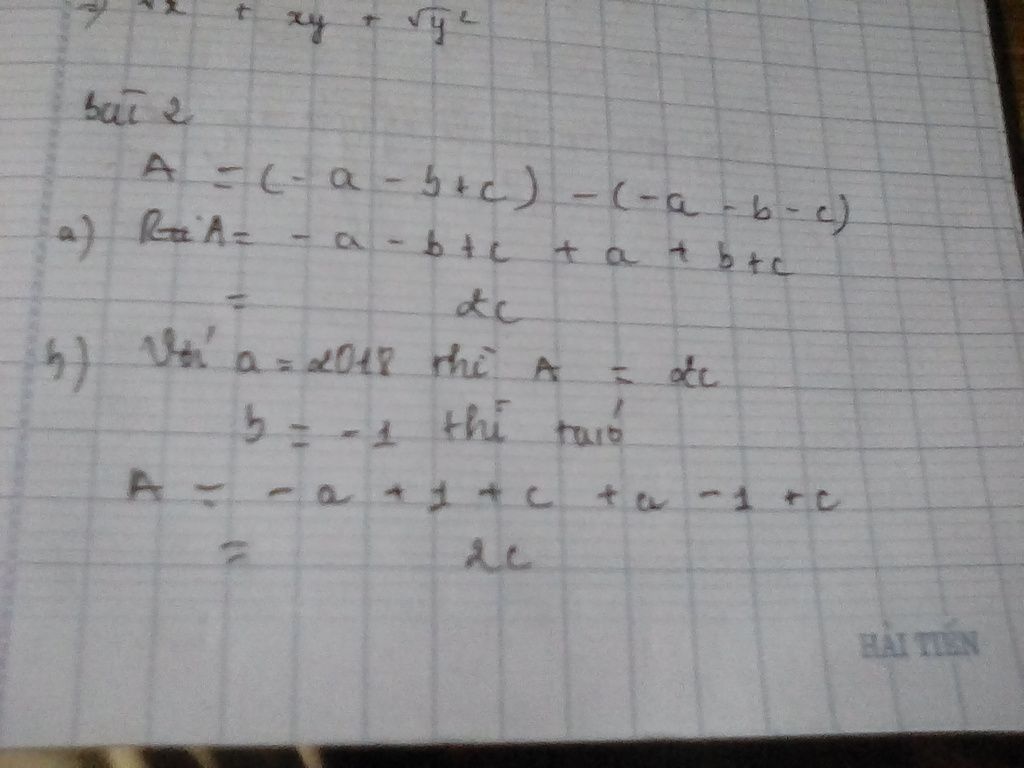 => √x + xy + √y²
bài 2
A = (- a - b + c) - (-a - b - c)
a) A = - a - b + c + a + b + c
= 2c
b) Với a = 2018 thì A = 2c
b = -1 thì ta có
A = - a + 1 + c + a - 1 + c
= 2c
HẢI TIẾN